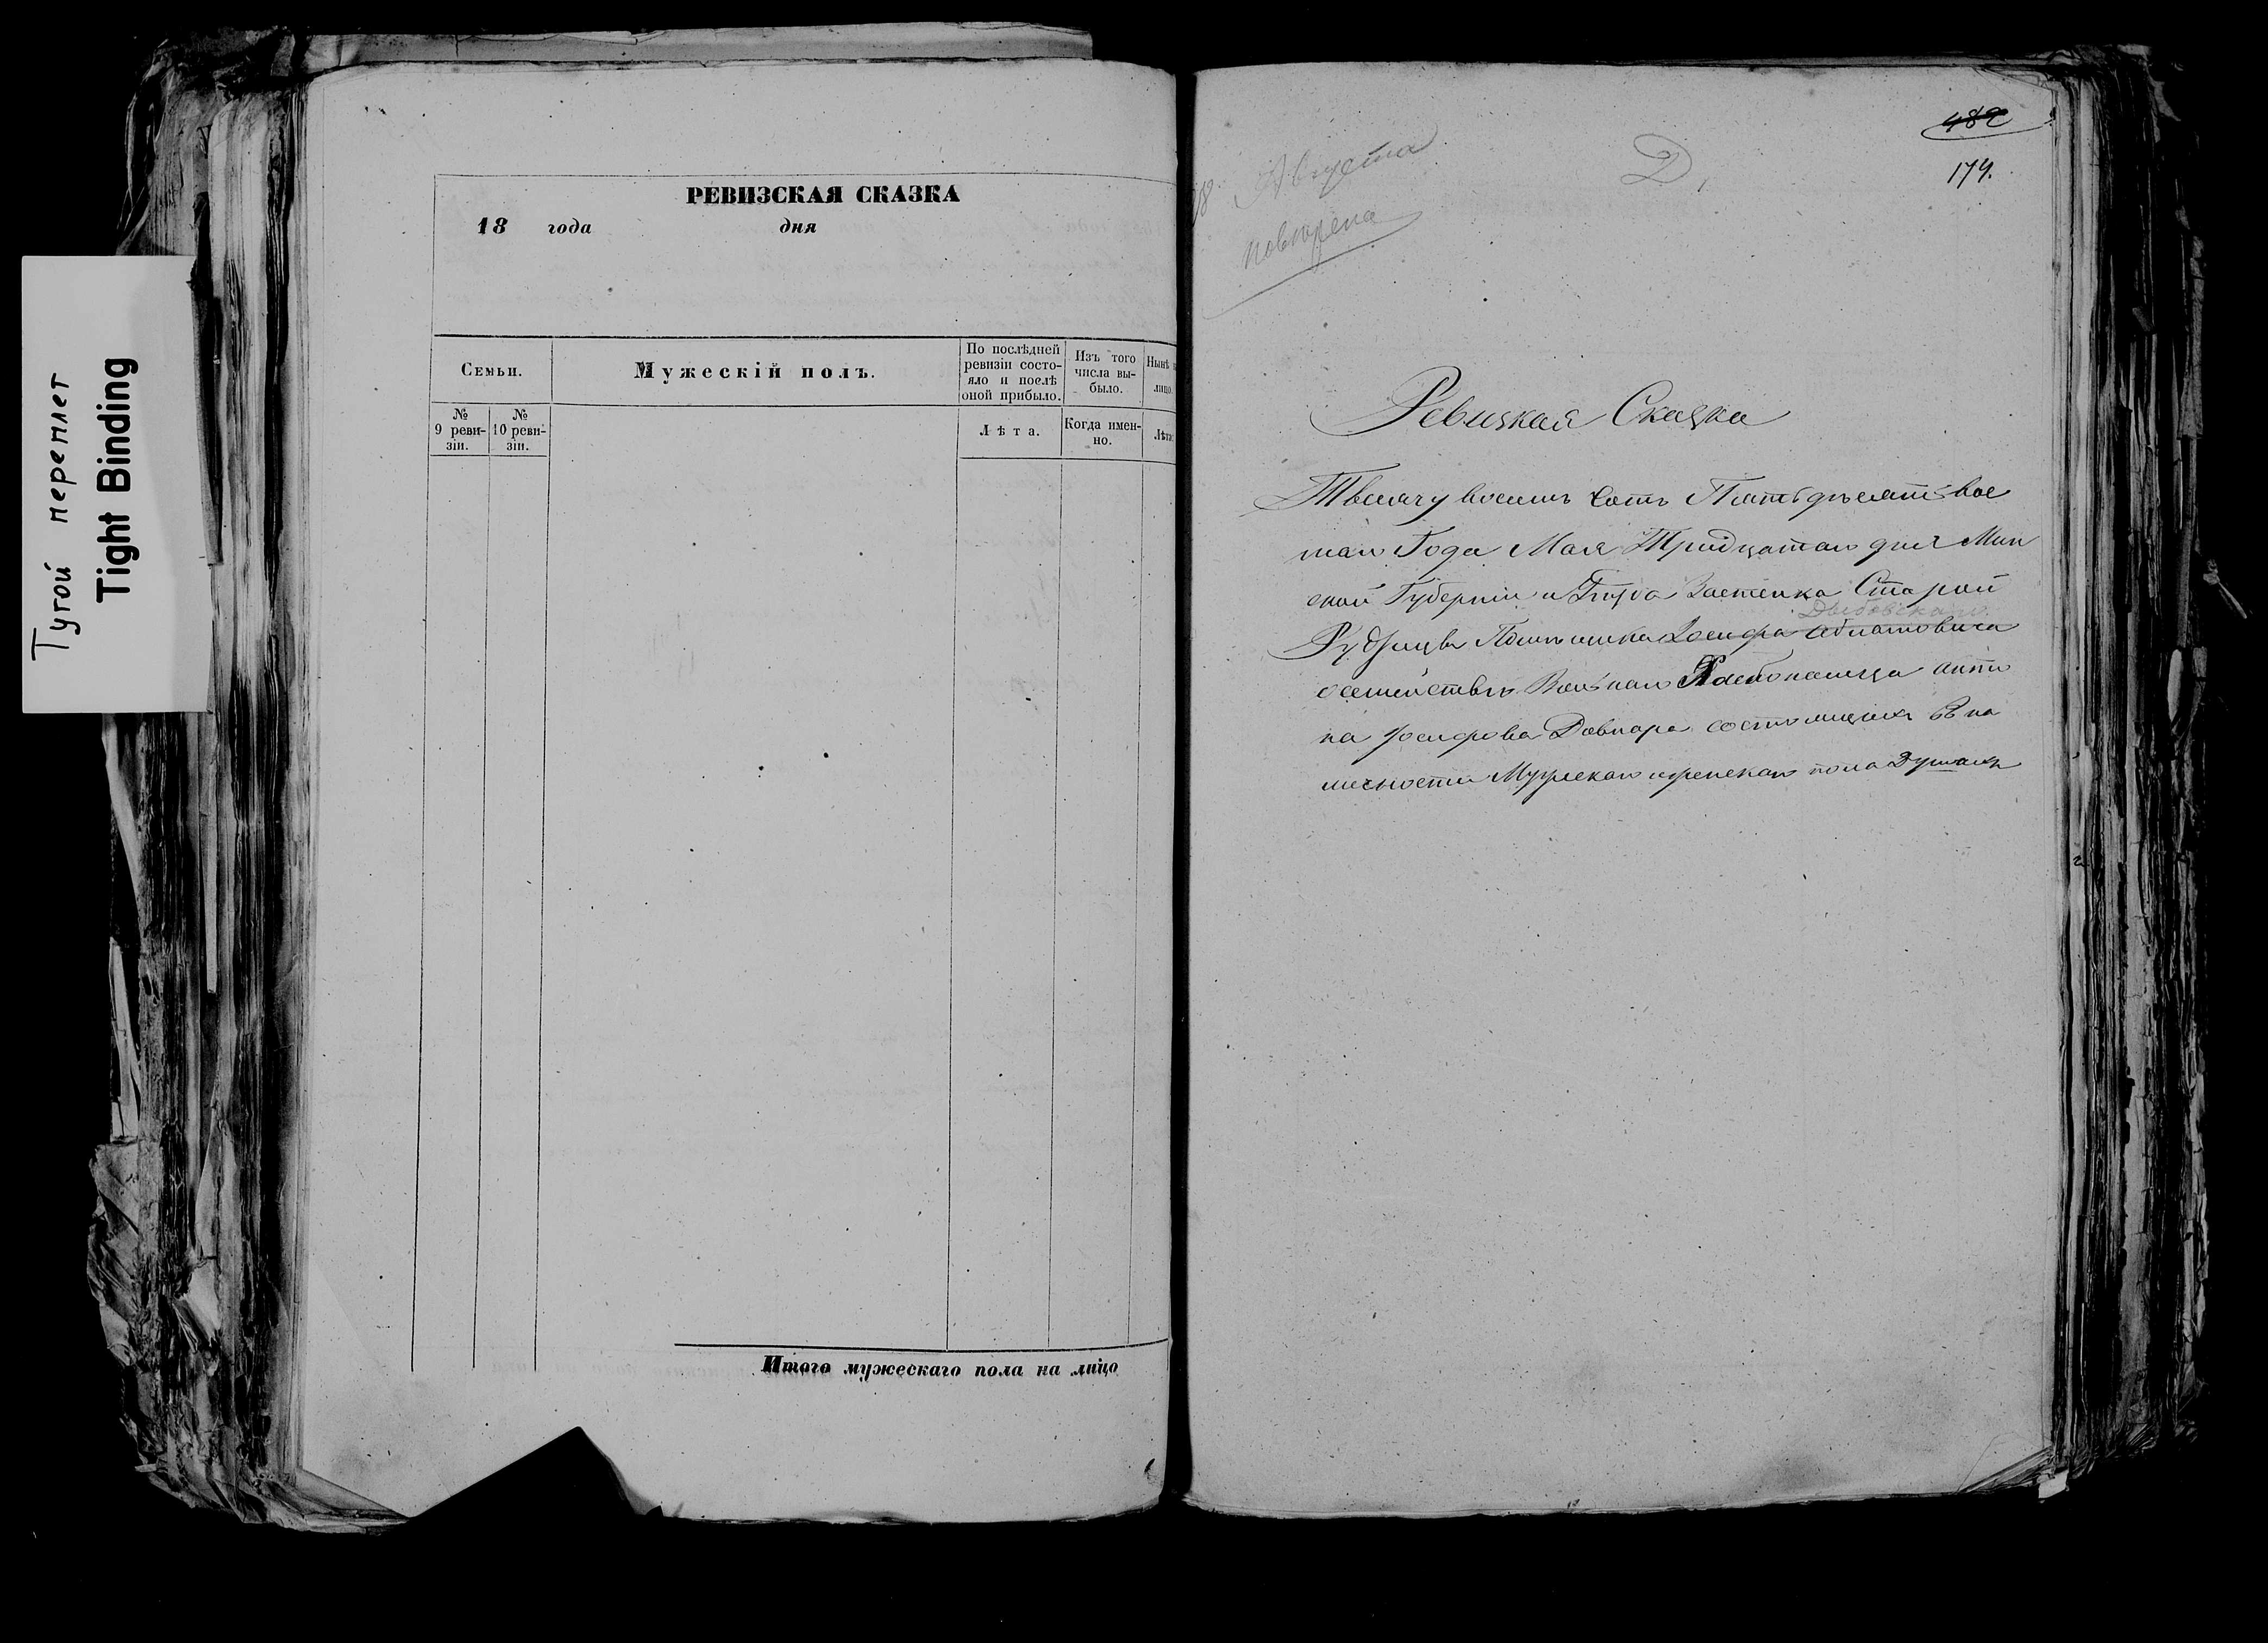 Тугой переплет
Tight Binding
РЕВИЗСКАЯ СКАЗКА
18 года дня
Семьи.
Мужескій полъ.
По послѣдней
ревизіи состо-
яло и послѣ
оной прибыло.
Изъ того
числа вы-
было.
Нынѣ
лицо.
№
9 реви-
зіи.
№
10 реви-
зіи.
Лѣта.
Когда имен-
но.
Лѣта
Итого мужескаго пола на лицо
482
174.
18 Августа
повѣрена
Д,
Ревизкая Сказка
Тысячу восемь Сотъ Пятьдѣсятъ вос
маго Года Мая Тридцатаго дня Мин
ской Губерніи и Застенка Старой
Рудзицы Помѣщика Іосифа
осемействѣ Вольнаго Анто
на Іосифова Довнара состоящихъ въ на
личности Мужескаго иженскаго пола Душахъ